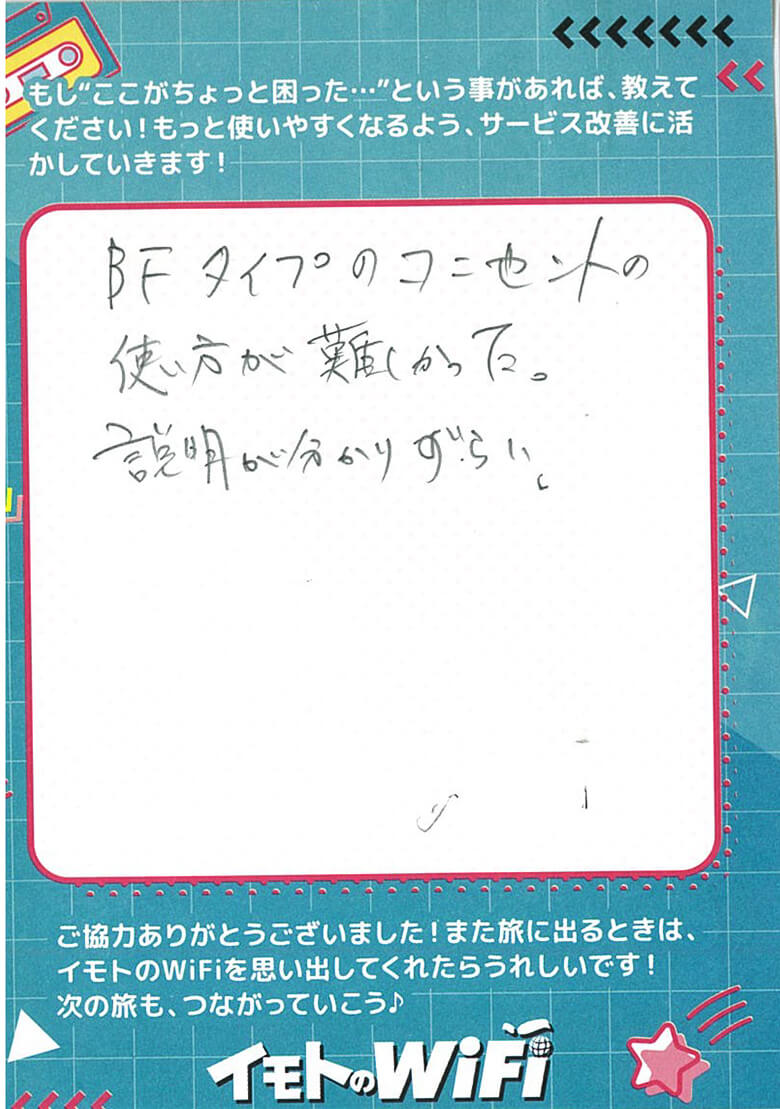 もし“ここがちょっと困った…”という事があれば、教えて
ください！もっと使いやすくなるよう、サービス改善に活
かしていきます！
BFタイプのコンセントの
使い方が難しかった。
説明が分かりずらい。
ご協力ありがとうございました！また旅に出るときは、
イモトのWiFiを思い出してくれたらうれしいです！
次の旅も、つながっていこう♪
イモトのWiFi